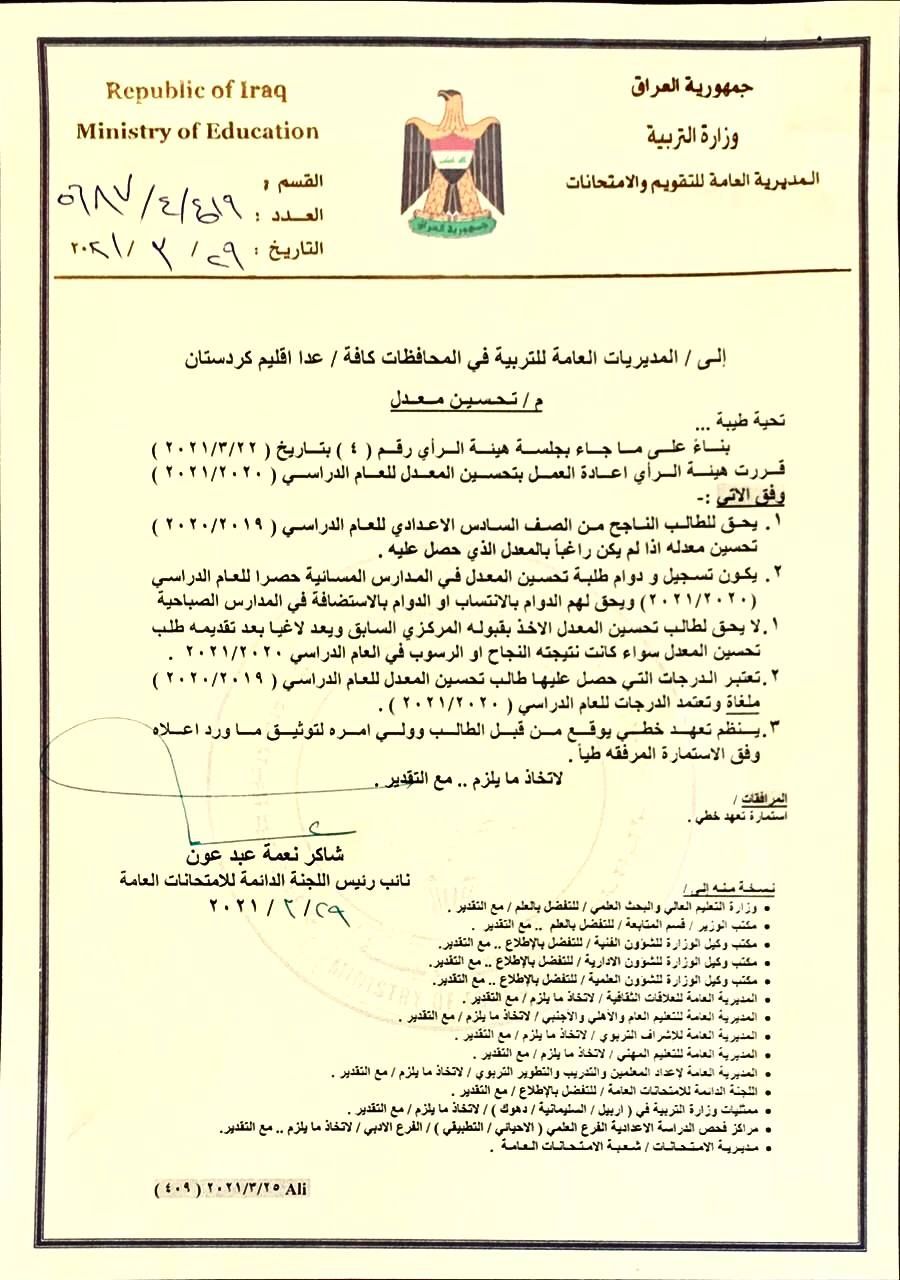 Republic of Iraq
Ministry of Education
جمهورية العراق
وزارة التربية
المديرية العامة للتقويم والامتحانات
القسم :
العدد :
التاريخ : ٢٩ / ٣ / ٢٠٢١
جمهورية العراق
إلى / المديريات العامة للتربية في المحافظات كافة / عدا اقليم كردستان
م / تحسين معدل
تحية طيبة ...
بناءً على ما جاء بجلسة هيئة الرأي رقم ( ٤ ) بتاريخ ( ٢٠٢١/٣/٢٢ )
قررت هيئة الرأي اعادة العمل بتحسين المعدل للعام الدراسي ( ٢٠٢١/٢٠٢٠ )
وفق الاتي :-
١. يحق للطالب الناجح من الصف السادس الاعدادي للعام الدراسي ( ٢٠٢٠/٢٠١٩ )
تحسين معدله اذا لم يكن راغباً بالمعدل الذي حصل عليه .
٢. يكون تسجيل و دوام طلبة تحسين المعدل في المدارس المسائية حصرا للعام الدراسي
(٢٠٢١/٢٠٢٠) ويحق لهم الدوام بالانتساب او الدوام بالاستضافة في المدارس الصباحية
١. لا يحق لطالب تحسين المعدل الاخذ بقبوله المركزي السابق ويعد لاغيا بعد تقديمه طلب
تحسين المعدل سواء كانت نتيجته النجاح او الرسوب في العام الدراسي ٢٠٢١/٢٠٢٠ .
٢. تعتبر الدرجات التي حصل عليها طالب تحسين المعدل للعام الدراسي ( ٢٠٢٠/٢٠١٩ )
ملغاة وتعتمد الدرجات للعام الدراسي ( ٢٠٢١/٢٠٢٠ ) .
٣. ينظم تعهد خطي يوقع من قبل الطالب وولي امره لتوثيق ما ورد اعلاه
وفق الاستمارة المرفقه طياً .
لاتخاذ ما يلزم .. مع التقدير .
المرافقات /
استمارة تعهد خطي .
شاكر نعمة عبد عون
نائب رئيس اللجنة الدائمة للامتحانات العامة
٢٩ / ٣ / ٢٠٢١
نسخة منه إلى /
• وزارة التعليم العالي والبحث العلمي / للتفضل بالعلم / مع التقدير .
• مكتب الوزير / قسم المتابعة / للتفضل بالعلم .. مع التقدير .
• مكتب وكيل الوزارة للشؤون الفنية / للتفضل بالإطلاع .. مع التقدير.
• مكتب وكيل الوزارة للشؤون الادارية / للتفضل بالإطلاع .. مع التقدير.
• مكتب وكيل الوزارة للشؤون العلمية / للتفضل بالإطلاع .. مع التقدير.
• المديرية العامة للعلاقات الثقافية / لاتخاذ ما يلزم / مع التقدير .
• المديرية العامة للتعليم العام والاهلي والاجنبي / لاتخاذ ما يلزم / مع التقدير .
• المديرية العامة للاشراف التربوي / لاتخاذ ما يلزم / مع التقدير .
• المديرية العامة للتعليم المهني / لاتخاذ ما يلزم / مع التقدير .
• المديرية العامة لاعداد المعلمين والتدريب والتطوير التربوي / لاتخاذ ما يلزم / مع التقدير .
• اللجنة الدائمة للامتحانات العامة / للتفضل بالإطلاع / مع التقدير .
• ممثليات وزارة التربية في ( اربيل / السليمانية / دهوك ) / لاتخاذ ما يلزم / مع التقدير .
• مراكز فحص الدراسة الاعدادية الفرع العلمي ( الاحيائي / التطبيقي ) / الفرع الادبي / لاتخاذ ما يلزم .. مع التقدير.
• مديرية الامتحانات / شعبة الامتحانات العامة .
Ali ٢٠٢١/٣/٢٥ ( ٤٠٩ )